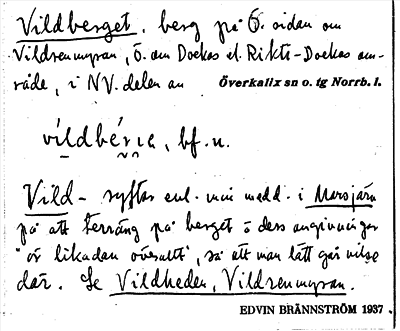 Vildberget, berg på Ö. sidan om
Vildrenmyran, Ö. om Dockas el. Rikti-Dockas om-
råde, i NV. delen av Överkalix sn o. tg Norrb. l.
vildbérɩe, bf. n.
Vild- syftar enl. min medd. i Marsjärn
på att terräng på berget o dess omgivningar
"är likadan överallt", så att man lätt går vilse
där. Se Vildheden, Vildrenmyran.
EDVIN BRÄNNSTRÖM 1937